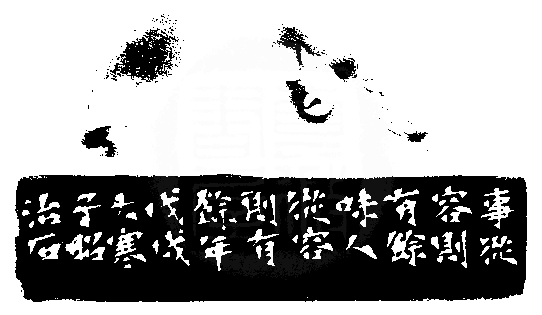 事從
容則
有餘
味人
從容
則有
餘年
戊戌
大寒
子昭
治石